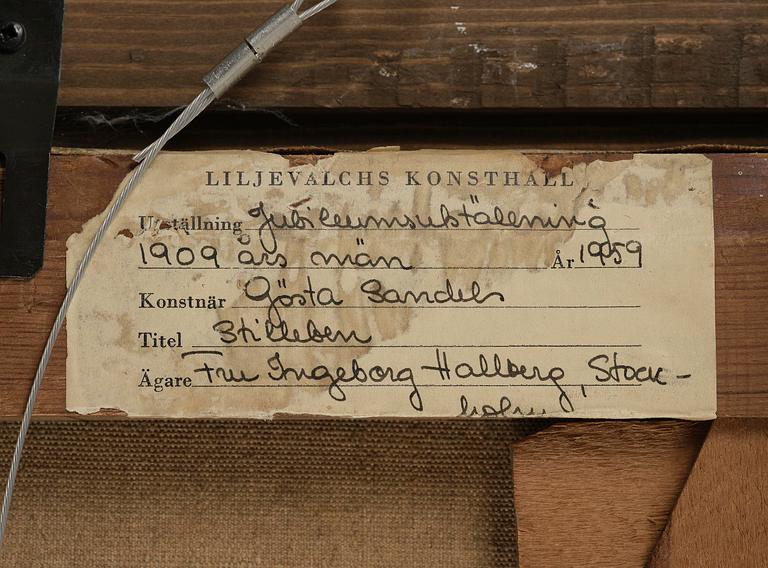 LILJEVALCHS KONSTHALL
Utställning Jubileumsutställning
1909 års män År 1959
Konstnär Gösta Sandels
Titel Stilleben
Ägare Fru Ingeborg Hallberg, Stock-
holm